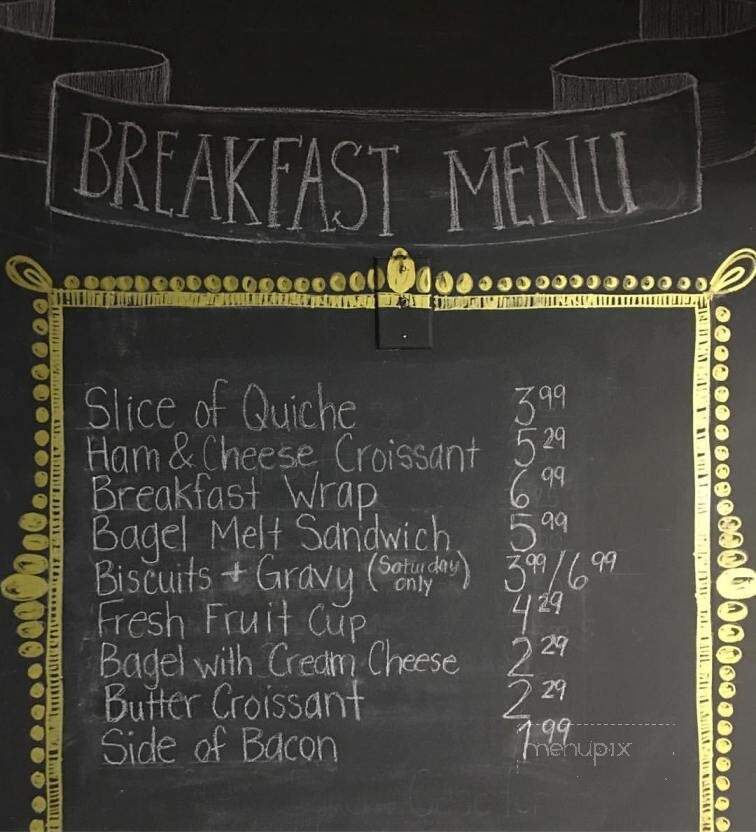 BREAKFAST MENU
Slice of Quiche 3.99
Ham & Cheese Croissant 5.29
Breakfast Wrap 6.99
Bagel Melt Sandwich 5.99
Biscuits + Gravy (Saturday only) 3.99/6.99
Fresh Fruit Cup 4.29
Bagel with Cream Cheese 2.29
Butter Croissant 2.29
Side of Bacon 1.99
menupix